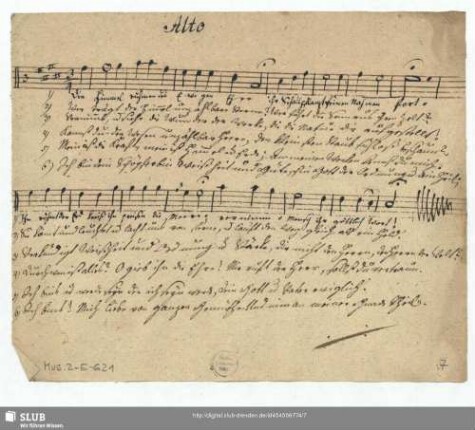 Alto
1) Die Himmel rühmen des Ewigen Ehre, ihr Schall pflanzt seinen Namen fort.
2) Wer trägt der Himmel unzählbare Sterne? Wer führt die Sonn aus ihrem Zelt?
3) Vernimms, und siehe die Wunder der Werke, die die Natur dir aufgestellt!
4) Kannst du der Wesen unzählbare Heere, den kleinsten Staub
5) Mein ist die Kraft, mein ist Himmel und Erde; an meinen Werken kennst du mich.
6) Ich bin dein Schöpfer, bin Weisheit und Güte, ein Gott der Ordnung und dein Heil;
Ihn rühmt der Erdkreis, ihn preisen die Meere; vernimm o Mensch ihr göttlich Wort!
2) Sie kömmt und leuchtet und lacht uns von ferne, und läuft den Weg gleich als ein Held.
3) Verkündigt Weisheit und Ordnung und Stärke, dir nicht den Herrn, den Herrn der Welt?
4) Durch wen ist alles? O gieb ihm die Ehre! Mir ruft der Herr, sollst du vertraun.
5) Ich bins und werde seyn der ich seyn werde, dein Gott und Vater ewiglich.
6) Ich bins! Mich liebe von ganzem Gemüthe, und nimm an meiner Gnade Theil.
Mus. 2-E-621
7
SLUB
Wir führen Wissen.
http://digital.slub-dresden.de/